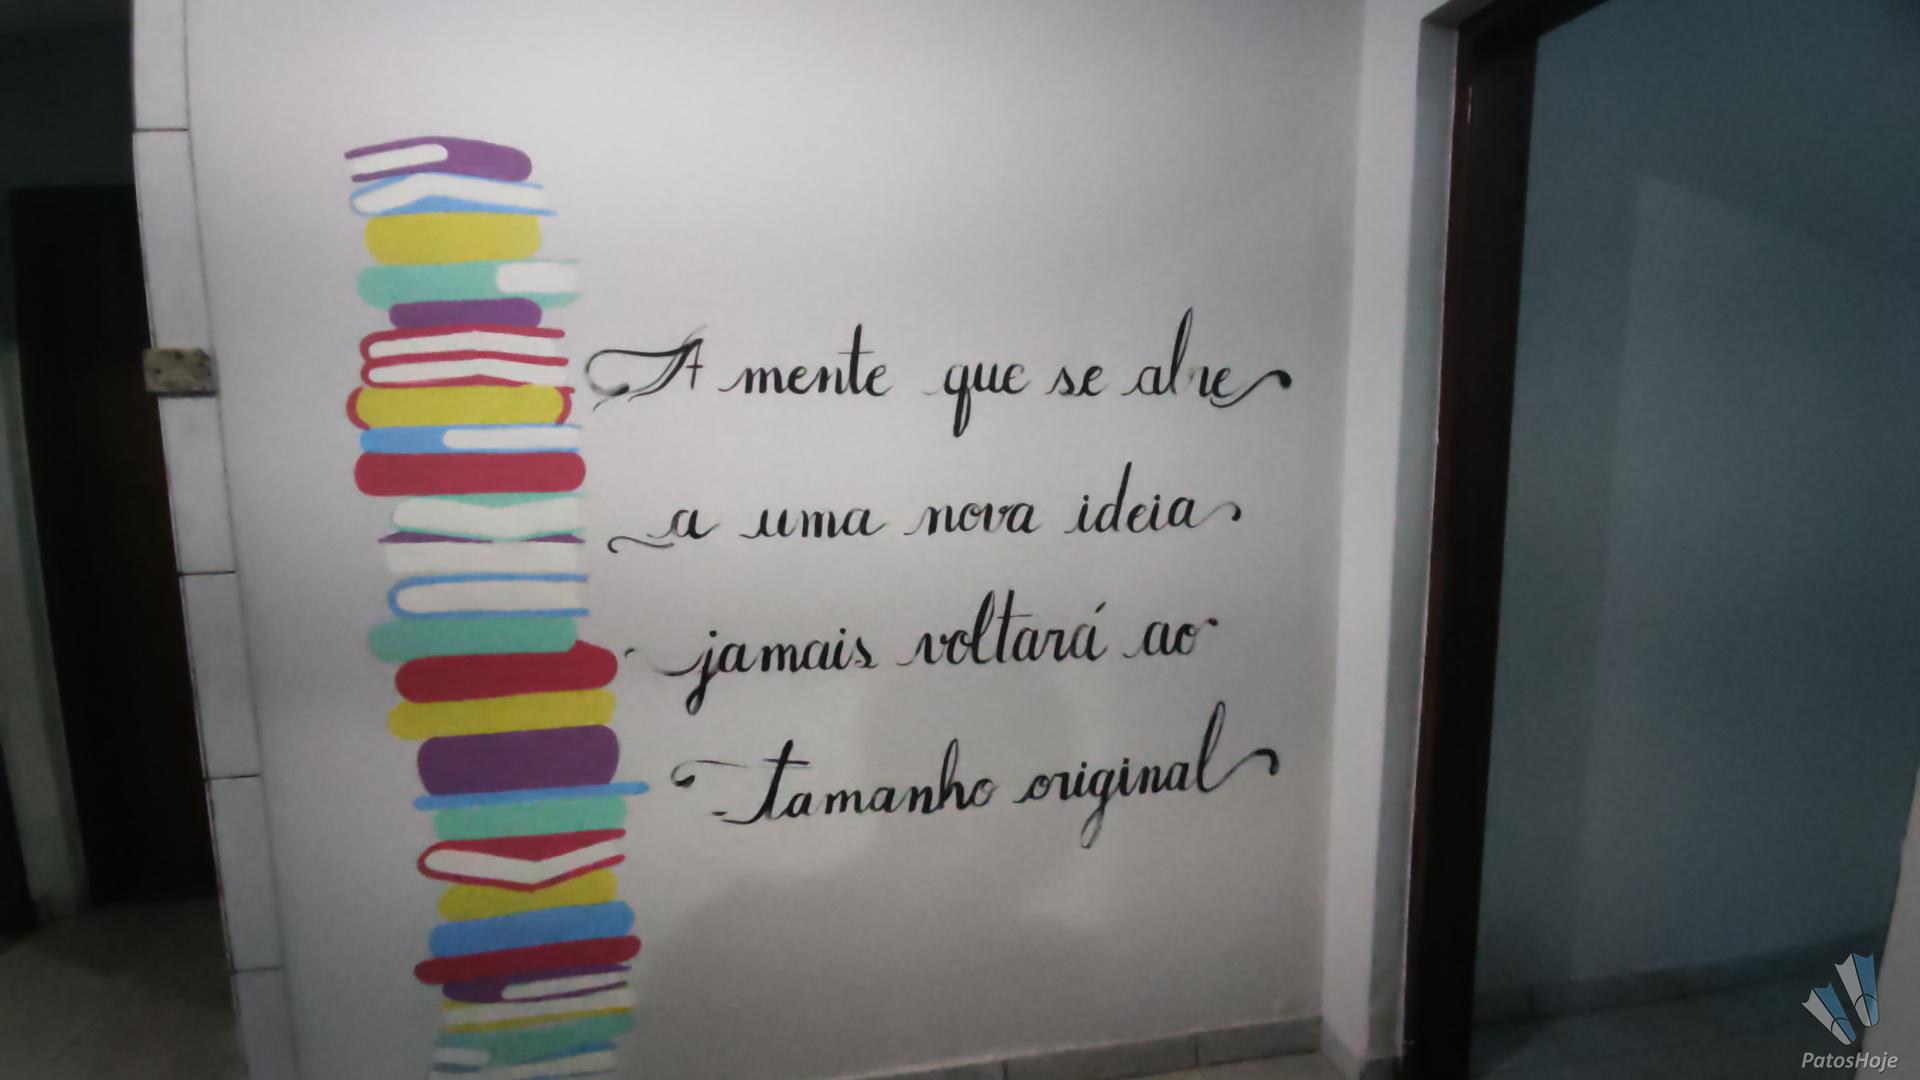 A mente que se abre
a uma nova ideia
jamais voltará ao
tamanho original
PatosHoje